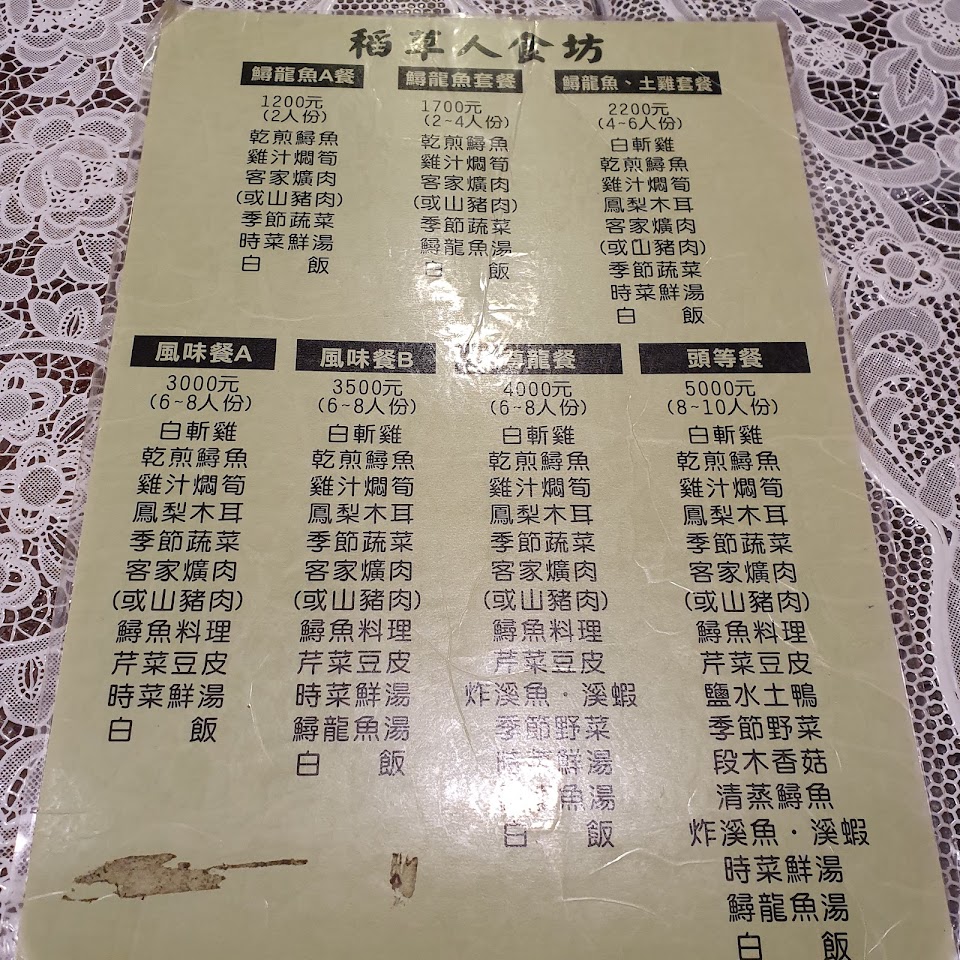 稻草人食坊
鱘龍魚A餐
1200元
(2人份)
乾煎鱘魚
雞汁燜筍
客家爌肉
(或山豬肉)
季節蔬菜
時菜鮮湯
白 飯
鱘龍魚套餐
1700元
(2~4人份)
乾煎鱘魚
雞汁燜筍
客家爌肉
(或山豬肉)
季節蔬菜
鱘龍魚湯
白 飯
鱘龍魚、土雞套餐
2200元
(4~6人份)
白斬雞
乾煎鱘魚
雞汁燜筍
鳳梨木耳
客家爌肉
(或山豬肉)
季節蔬菜
時菜鮮湯
白 飯
風味餐A
3000元
(6~8人份)
白斬雞
乾煎鱘魚
雞汁燜筍
鳳梨木耳
季節蔬菜
客家爌肉
(或山豬肉)
鱘魚料理
芹菜豆皮
時菜鮮湯
白 飯
風味餐B
3500元
(6~8人份)
白斬雞
乾煎鱘魚
雞汁燜筍
鳳梨木耳
季節蔬菜
客家爌肉
(或山豬肉)
鱘魚料理
芹菜豆皮
時菜鮮湯
鱘龍魚湯
白 飯
龍餐
4000元
(6~8人份)
白斬雞
乾煎鱘魚
雞汁燜筍
鳳梨木耳
季節蔬菜
客家爌肉
(或山豬肉)
鱘魚料理
芹菜豆皮
炸溪魚·溪蝦
季節野菜
時菜鮮湯
魚湯
白 飯
頭等餐
5000元
(8~10人份)
白斬雞
乾煎鱘魚
雞汁燜筍
鳳梨木耳
季節蔬菜
客家爌肉
(或山豬肉)
鱘魚料理
芹菜豆皮
鹽水土鴨
季節野菜
段木香菇
清蒸鱘魚
炸溪魚·溪蝦
時菜鮮湯
鱘龍魚湯
白 飯